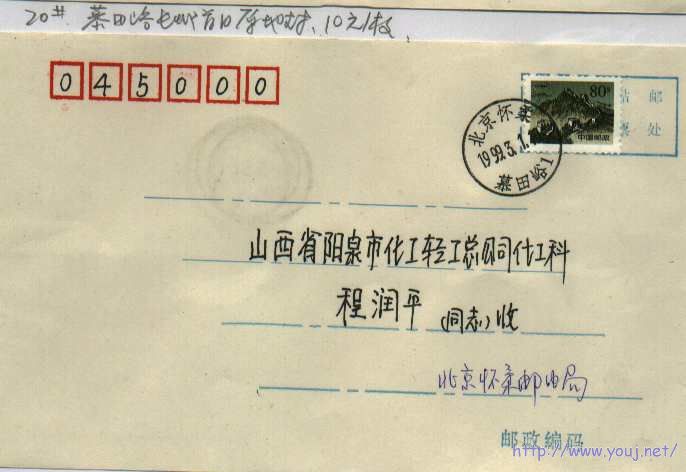 20# 慕田峪长城首日原地封, 10元/枚
045000
80分
中国邮政
贴邮
票处
北京怀柔
1999.3.1.
慕田峪1
山西省阳泉市化工轻工总公司化工科
程润平 (同志)收
北京怀柔邮电局
邮政编码
http://www.youj.net/